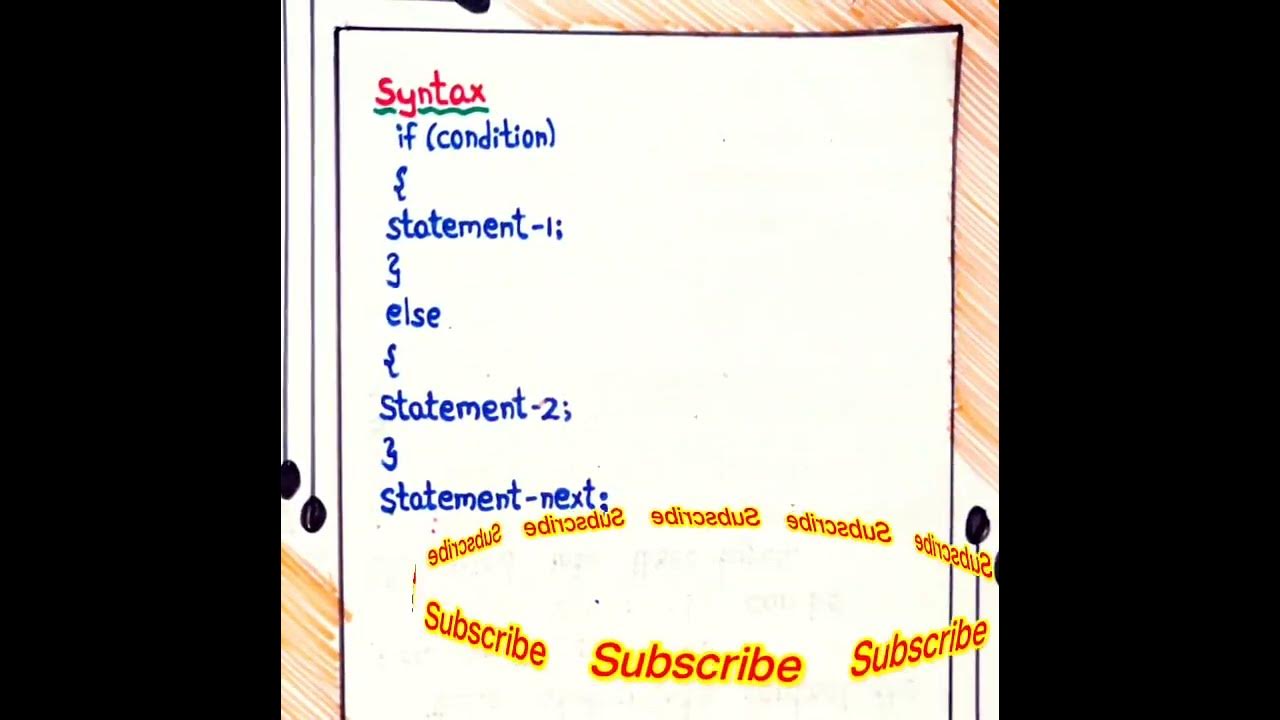 Syntax
if (condition)
{
statement-1;
}
else
{
Statement-2;
}
Statement-next;
Subscribe Subscribe Subscribe Subscribe Subscribe
Subscribe Subscribe Subscribe